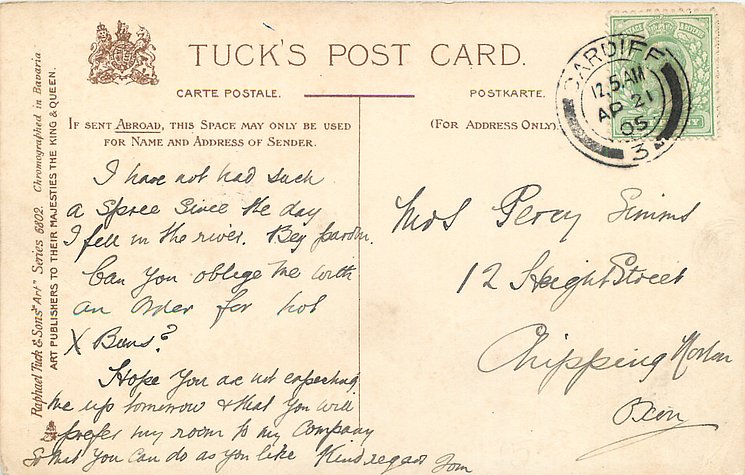 TUCK'S POST CARD.
CARTE POSTALE. POSTKARTE.
IF SENT ABROAD, THIS SPACE MAY ONLY BE USED
FOR NAME AND ADDRESS OF SENDER.
(FOR ADDRESS ONLY).
Raphael Tuck & Sons' "Art" Series 6002. Chromographed in Bavaria
ART PUBLISHERS TO THEIR MAJESTIES THE KING & QUEEN.
CARDIFF
12.5 AM
AP 21
05
3
I have not had such
a Spree Since the day
I fell in the river. Beg pardon.
Can you oblige me with
an order for hot
X Buns?
Hope you are not expecting
me up tomorrow & that you will
prefer my room to my Company
So that you can do as you like Kind regards Tom
Mrs Percy Simms
12 Height Street
Chipping Norton
Oxon